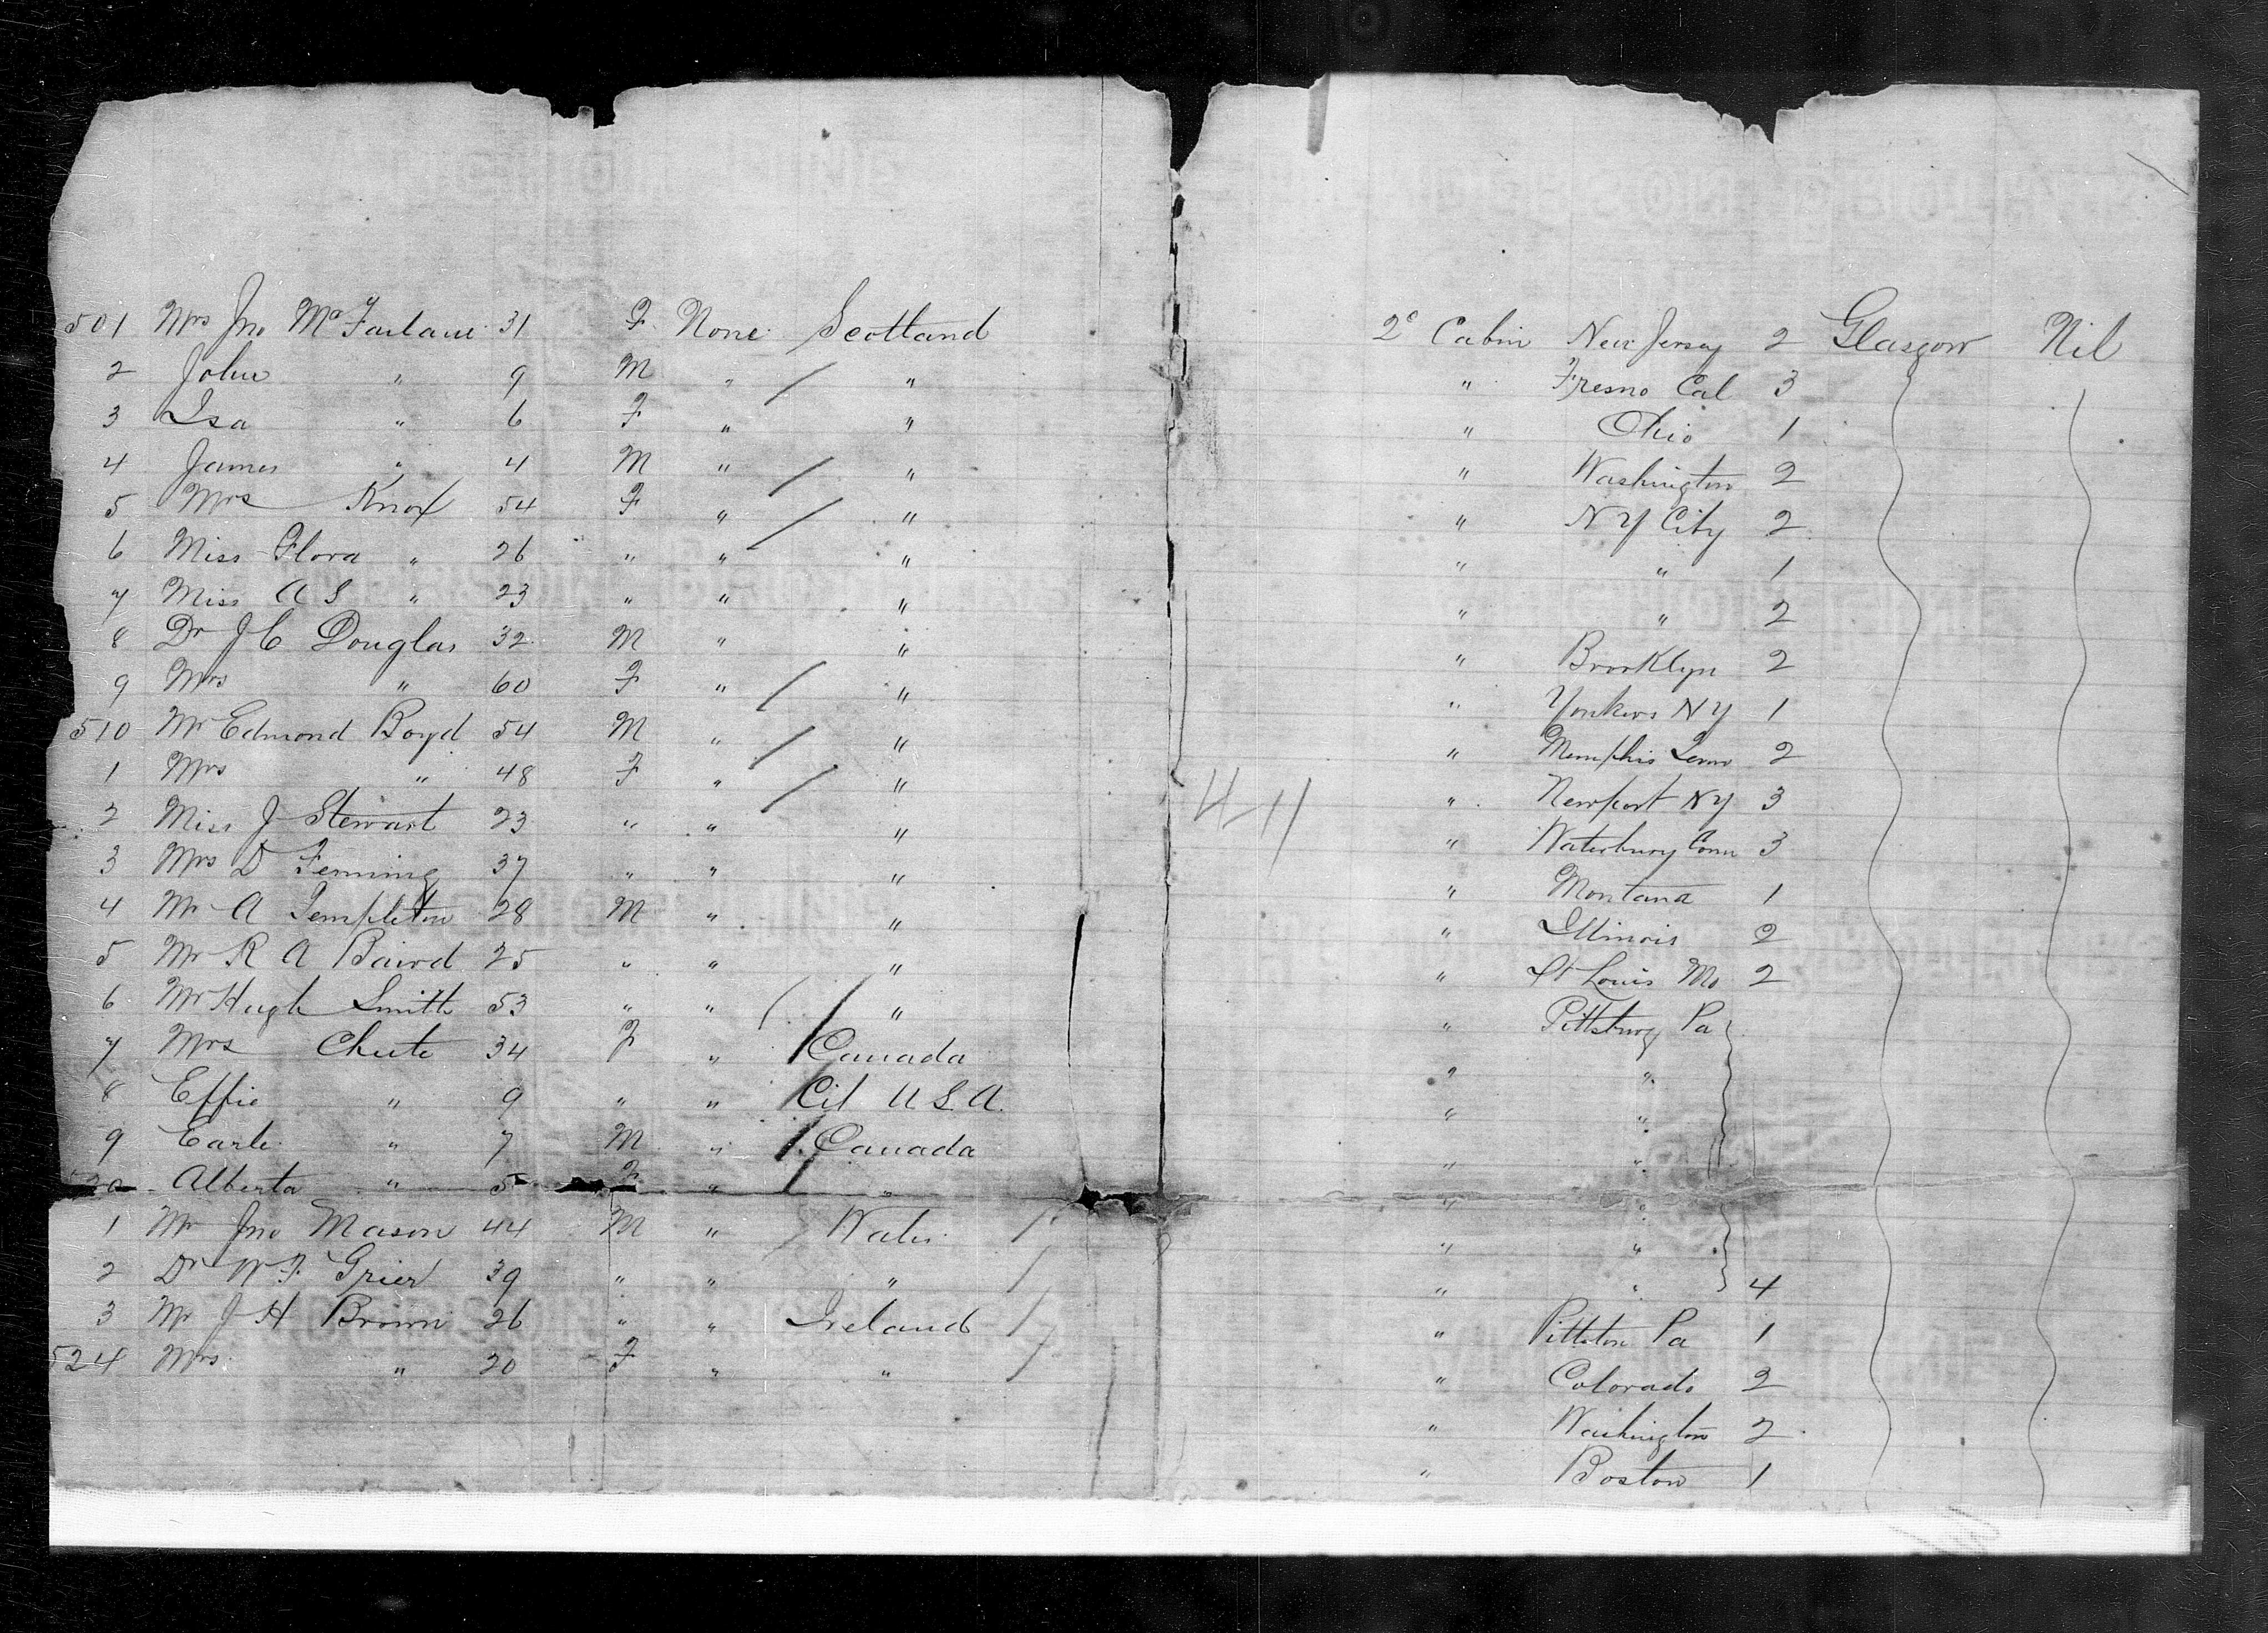 501 Mrs Jno McFarlane 31 F. None Scotland 2c Cabin New Jersey 2 Glasgow Nil
2 John " 9 M " " " Fresno Cal 3
3 Isa " 6 F " " " Ohio 1
4 James " 4 M " " " Washington 2
5 Mrs Knox 54 F " " " N Y City 2
6 Miss Flora " 26 " " " " " 1
7 Miss A S " 23 " " " " " 2
8 Dr J C Douglas 32 M " " " Brooklyn 2
9 Mrs " 60 F " " " Yonkers N Y 1
510 Mr Edmond Boyd 54 M " " " Memphis Tenn 2
1 Mrs " 48 F " " " Newport N Y 3
2 Miss J Stewart 23 " " " " Waterbury Conn 3
3 Mrs D Fenning 37 " " " " Montana 1
4 Mr A Templeton 28 M " " " Illinois 2
5 Mr R A Baird 25 " " " " St Louis Mo 2
6 Mr Hugh Smith 53 " " " " Pittsburg Pa
7 Mrs Chute 34 F " Canada " "
8 Effie " 9 " " Cit U.S.A. " "
9 Earle " 7 M " Canada " "
20 Alberta " 5 F " " " "
1 Mr Jno Mason 44 M " Wales " "
2 Dr W F Grier 39 " " " " " 4
3 Mr J H Brown 26 " " Ireland " Pittston Pa 1
524 Mrs " 20 F " " " Colorado 2
" Washington 2
" Boston 1